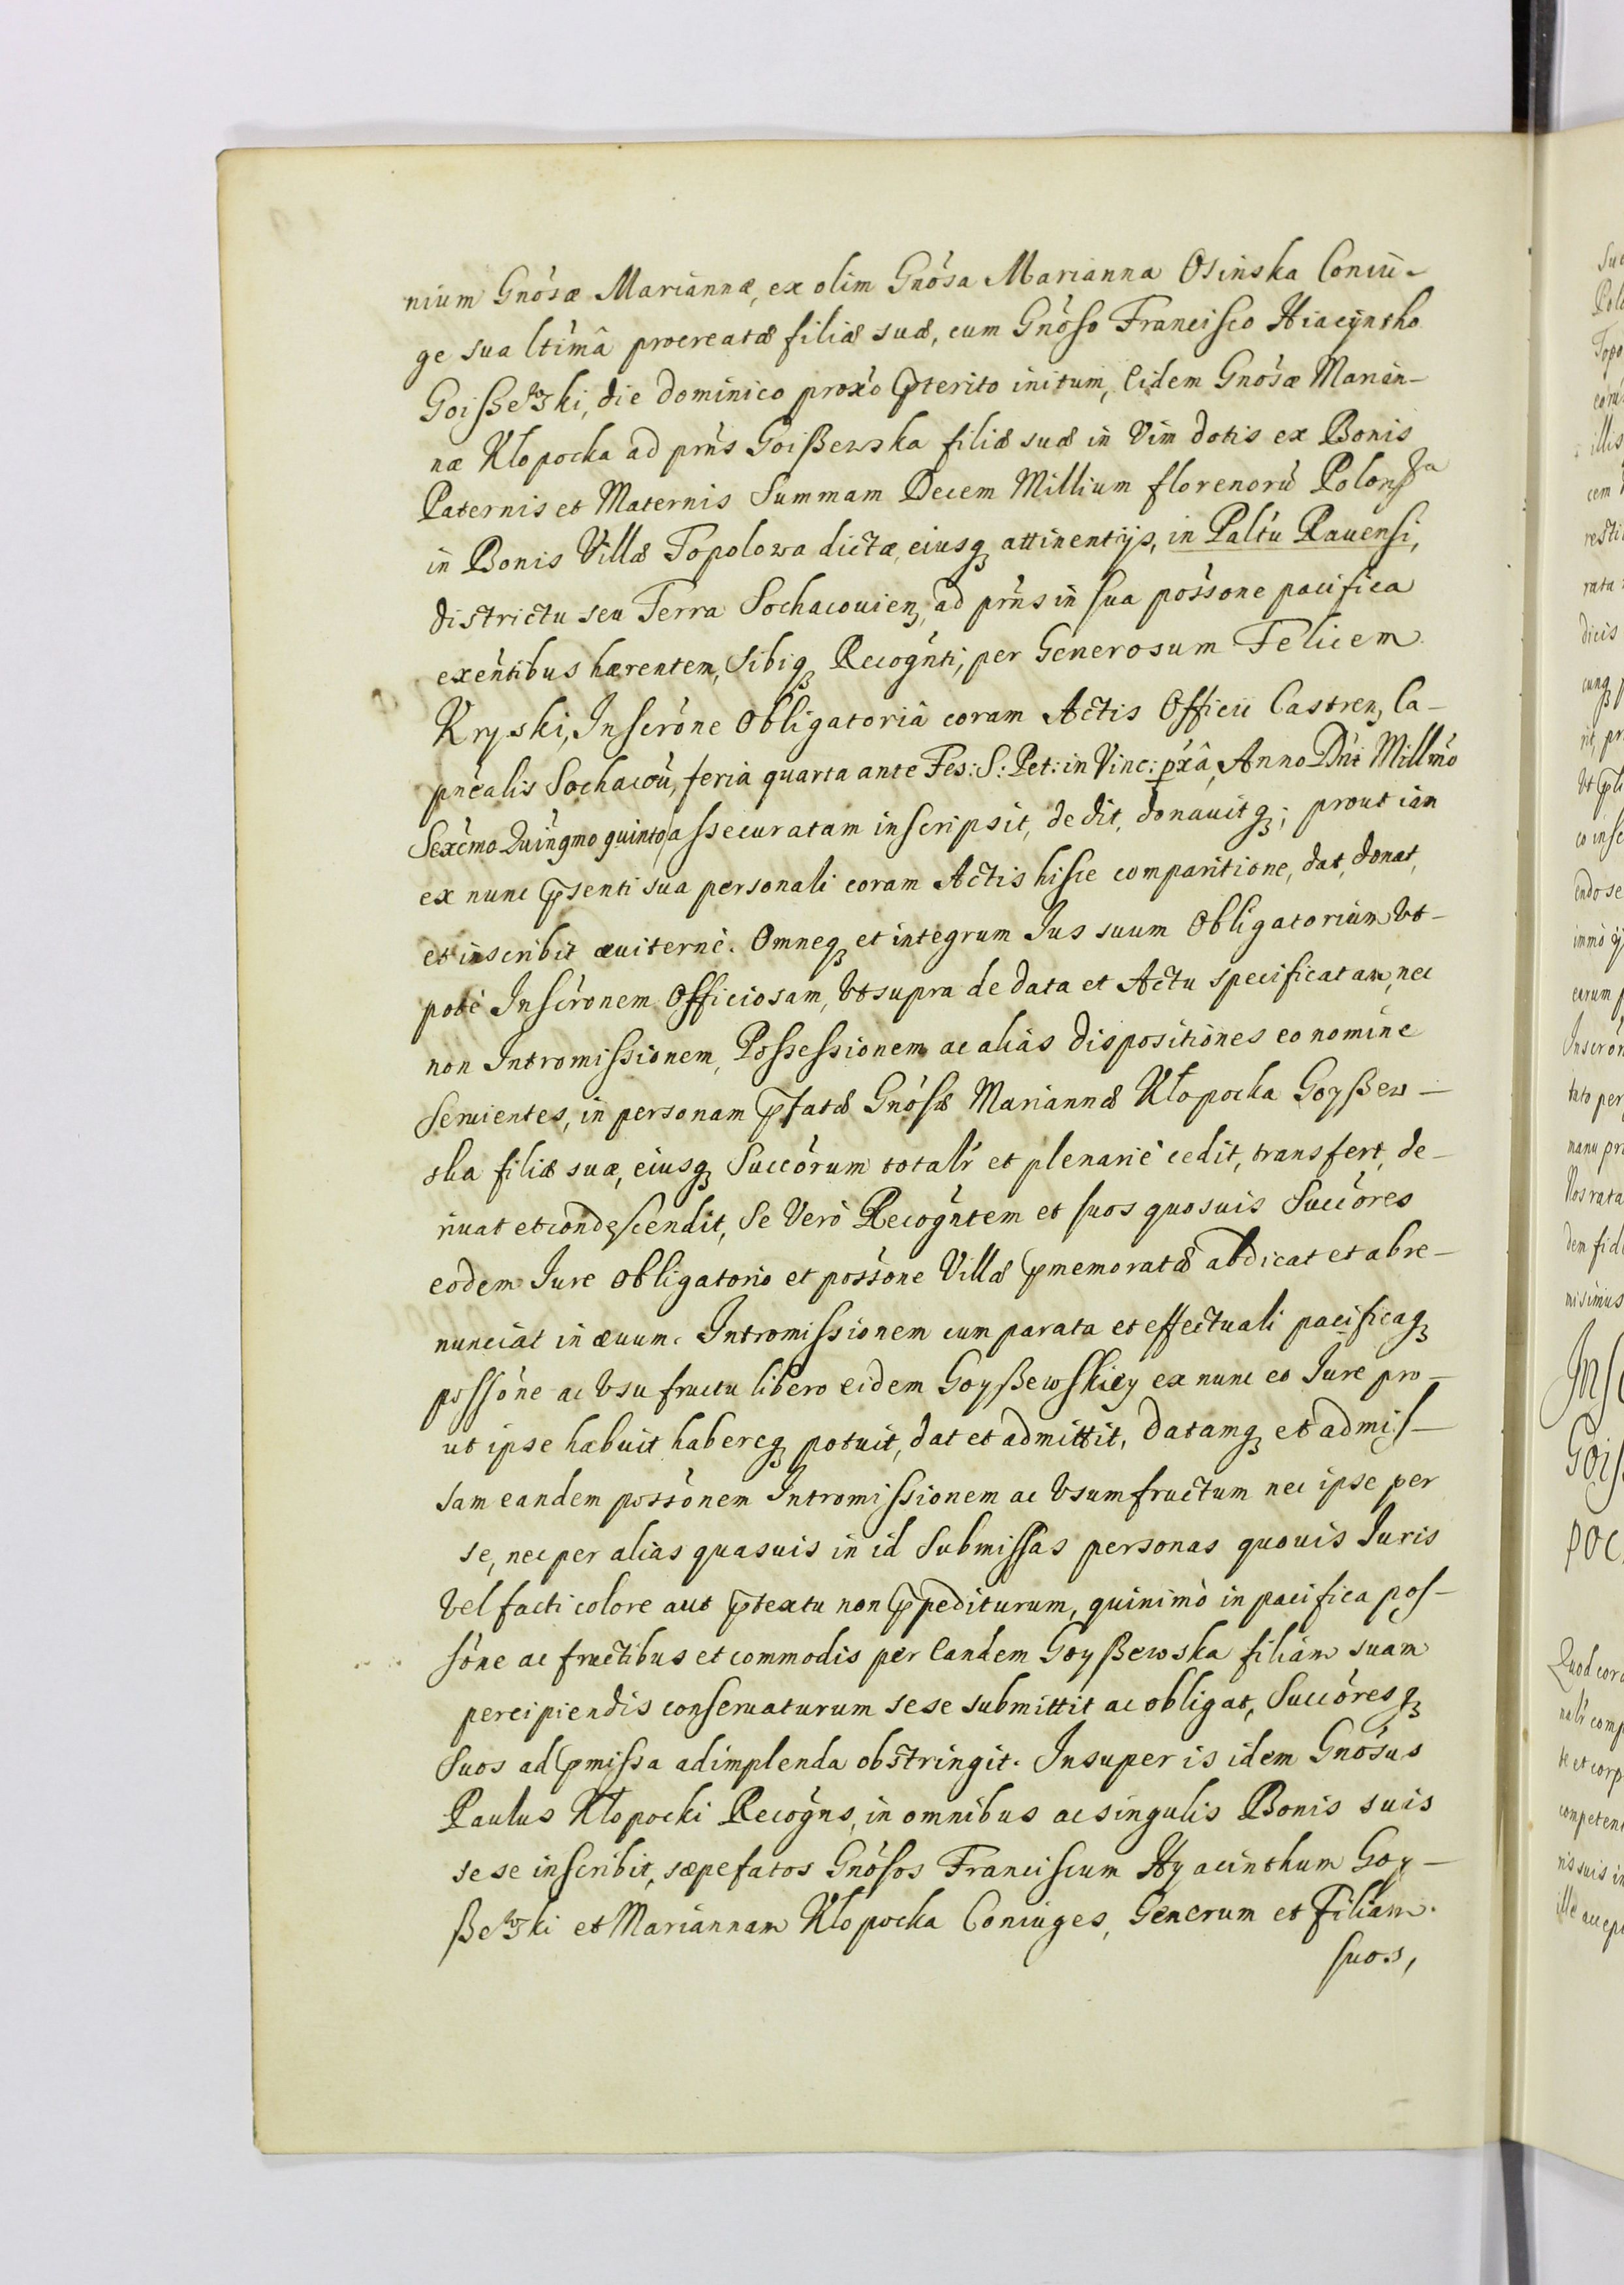 nium Gnósæ Mariannæ, ex olim Gnósa Marianna Osinska Coniu-
ge sua ltímâ procreatæ filiæ suæ, cum Gnóso Francisco Hiacyntho
Goißewski, die Dominico proxó pterito initum, Eidem Gnósæ Marian-
næ Kłopocka ad prńs Goißewska filiæ suæ in Vim dotis ex Bonis
Paternis et Maternis Summam Decem Millium florenorũ
in Bonis Villæ Topolowa dictæ, eiusq attinentijs, in Paltu Rauensi,
districtu seu Terra Sochacouien, ad prńs in sua possone pacifica
exentibus hærentem, Sibiq Recognti, per Generosum Felicem
Kryski, Inscrone Obligatoriâ coram Actis Officii Castren, Ca-
pnealis Sochacou, feria quarta ante Fes: S: Pet: in Vinc: pxâ, Anno Dni Millmo
Sexcmo Quingmo quinto assecuratam inscripsit, dedit, donauitq; prout iam
ex nunc psenti sua personali coram Actis hisce comparitione, dat, donat,
et inscribit æuiterne. Omneq et integrum Jus suum Obligatorium Vt-
pote Inscronem Officiosam, Vt supra de data et Actu specificatam, nec
non Intromissionem, Possessionem ac alias dispositiones eo nomine
seruientes, in personam pfatæ Gnósæ Mariannæ Kłopocka Goyßew-
ska filiæ suæ, eiusq Succorum totalr et plenarie cedit, transfert, de-
riuat et condescendit, Se Vero Recogntem et suos quosuis Succores
eodem Jure Obligatorio et possone Villæ pmemoratæ abdicat et abre-
nunciat in æuum. Intromissionem cum parata et effectuali pacificaq
possone ac Vsufructu libero eidem Goyßewskiey ex nunc eo Jure pro-
ut ipse habuit habereq potuit, dat et admittit, Datamq et admis-
sam eandem possonem Intromissionem ac Vsumfructum nec ipse per
se, nec per alias quasuis in id Submissas personas quouis Juris
Vel facti colore aut ptextu non ppediturum, quinimo in pacifica pos-
sone ac fructibus et commodis per Eandem Goyßewska filiam suam
percipiendis conseruaturum sese submittit ac obligat, Succoresq
Suos ad pmissa adimplenda obstringit. Insuper is idem Gnósus
Paulus Kłopocki Recogns, in omnibus ac singulis Bonis suis
sese inscribit, sæpefatos Gnósos Franciscum Hyacinthum Goy-
ßewski et Mariannam Kłopocka Coniuges, Generum et Filiam
suos,